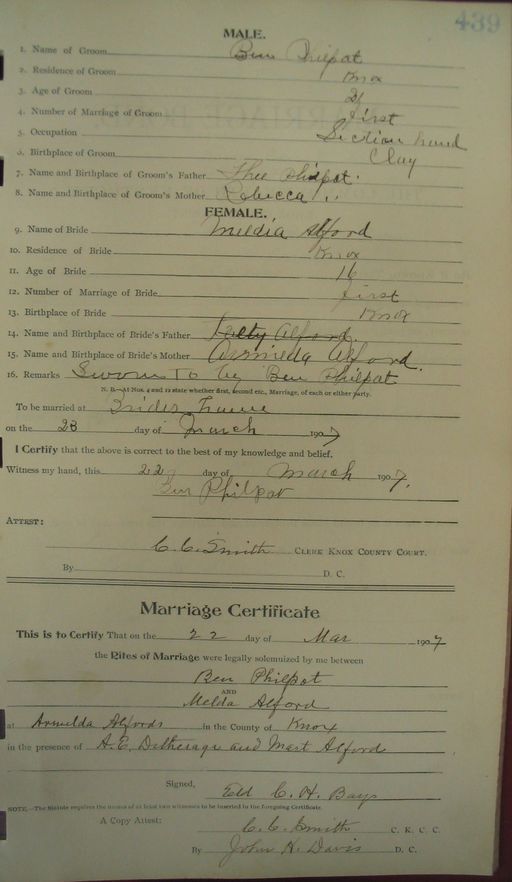 439
MALE.
1. Name of Groom Ben Philpat
2. Residence of Groom Knox
3. Age of Groom 21
4. Number of Marriage of Groom First
5. Occupation Section hand
6. Birthplace of Groom Clay
7. Name and Birthplace of Groom's Father Thee Philpot.
8. Name and Birthplace of Groom's Mother Rebecca "
FEMALE.
9. Name of Bride Meldia Alford
10. Residence of Bride Knox
11. Age of Bride 16
12. Number of Marriage of Bride First
13. Birthplace of Bride Knox
14. Name and Birthplace of Bride's Father Alford.
15. Name and Birthplace of Bride's Mother Armilda Alford.
16. Remarks Sworn To by Ben Philpat
N. B.—At Nos. 4 and 12 state whether first, second etc., Marriage, of each or either party.
To be married at Brides home
on the 23 day of March 1907
I Certify that the above is correct to the best of my knowledge and belief.
Witness my hand, this 22 day of March 1907.
Ben Philpot
ATTEST:
C. C. Smith CLERK KNOX COUNTY COURT.
By D. C.
Marriage Certificate
This is to Certify That on the 22 day of Mar 1907
the Rites of Marriage were legally solemnized by me between
Ben Philpot
AND
Melda Alford
at Armelda Alfords in the County of Knox
in the presence of A. E. Detherage and Mart Alford
Signed, Eld C. H. Bays
NOTE.—The Statute requires the names of at least two witnesses to be inserted in the foregoing Certificate.
A Copy Attest: C. C. Smith C. K. C. C.
By John H. Davis D. C.